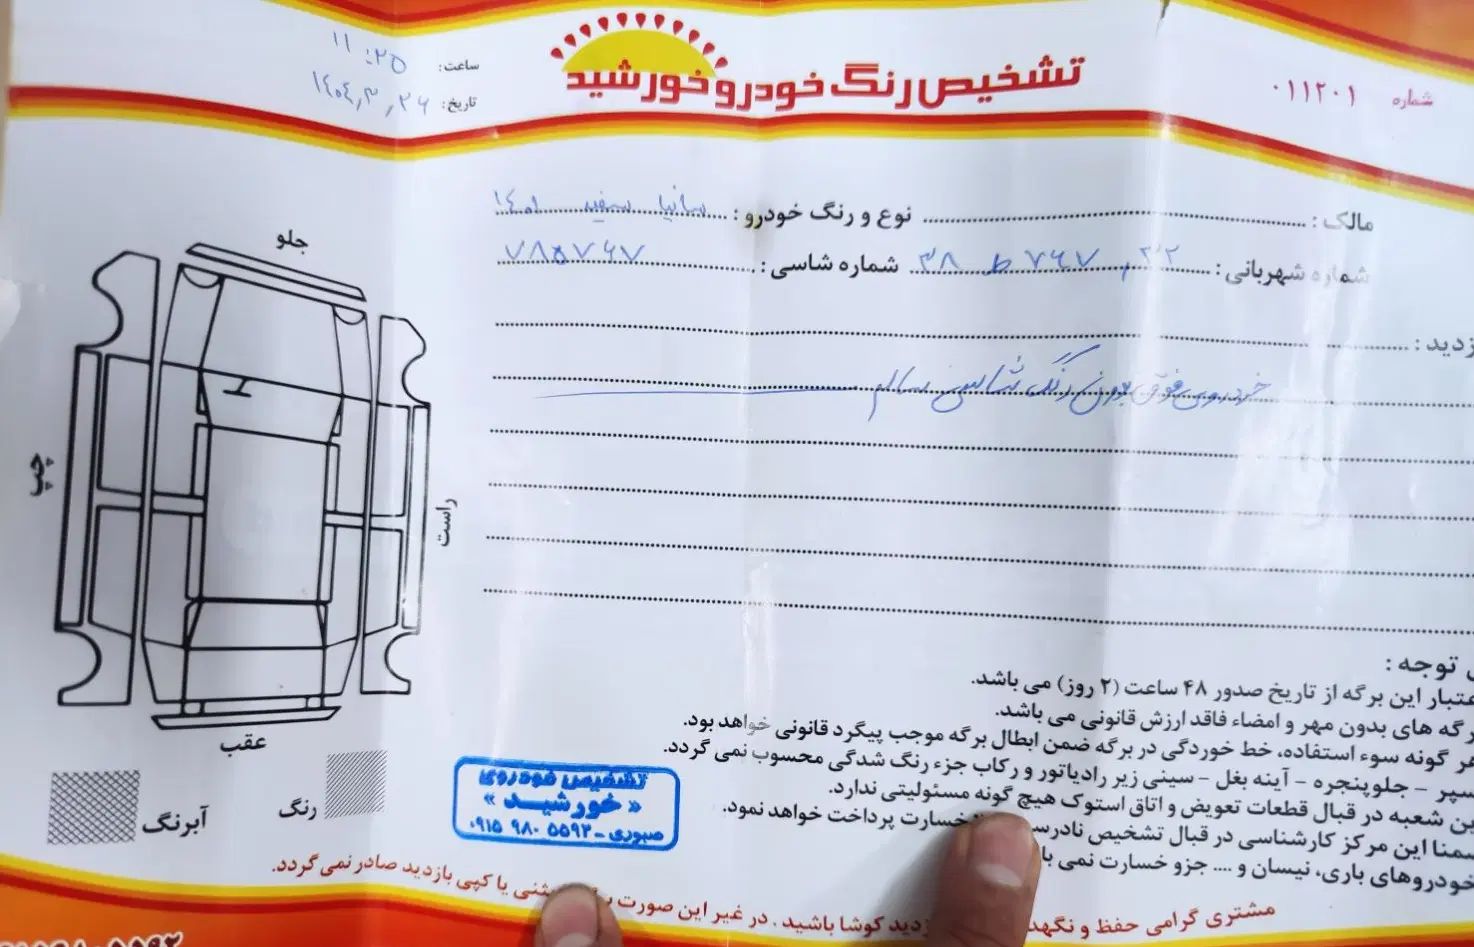 تشخیص رنگ خودرو خورشید
شماره ۰۱۱۲۰۱
ساعت: ۱۱:۲۵
تاریخ: ۱۴۰۴,۳,۲۶
مالک: نوع و رنگ خودرو: سانیا سفید ۱۴۰۱
شماره شهربانی: ۳۲, ۷۶۷ ط ۳۸ شماره شاسی: ۷۸۵۷۶۷
زدید:
خودروی فوق بدون رنگ شاسی سالم
جلو
چپ
راست
عقب
رنگ
آبرنگ
توجه:
عتبار این برگه از تاریخ صدور ۴۸ ساعت (۲ روز) می باشد.
رگه های بدون مهر و امضاء فاقد ارزش قانونی می باشد.
هر گونه سوء استفاده، خط خوردگی در برگه ضمن ابطال برگه موجب پیگرد قانونی خواهد بود.
سپر - جلوپنجره - آینه بغل - سینی زیر رادیاتور و رکاب جزء رنگ شدگی محسوب نمی گردد.
ین شعبه در قبال قطعات تعویض و اتاق استوک هیچ گونه مسئولیتی ندارد.
ضمنا این مرکز کارشناسی در قبال تشخیص نادرس خسارت پرداخت خواهد نمود.
خودروهای باری، نیسان و .... جزو خسارت نمی با
تشخیص خودروی
« خورشید »
صبوری - ۰۹۱۵ ۹۸۰ ۵۵۹۲
مشتری گرامی حفظ و نگهد زدید کوشا باشید. در غیر این صورت ب مثنی یا کپی بازدید صادر نمی گردد.